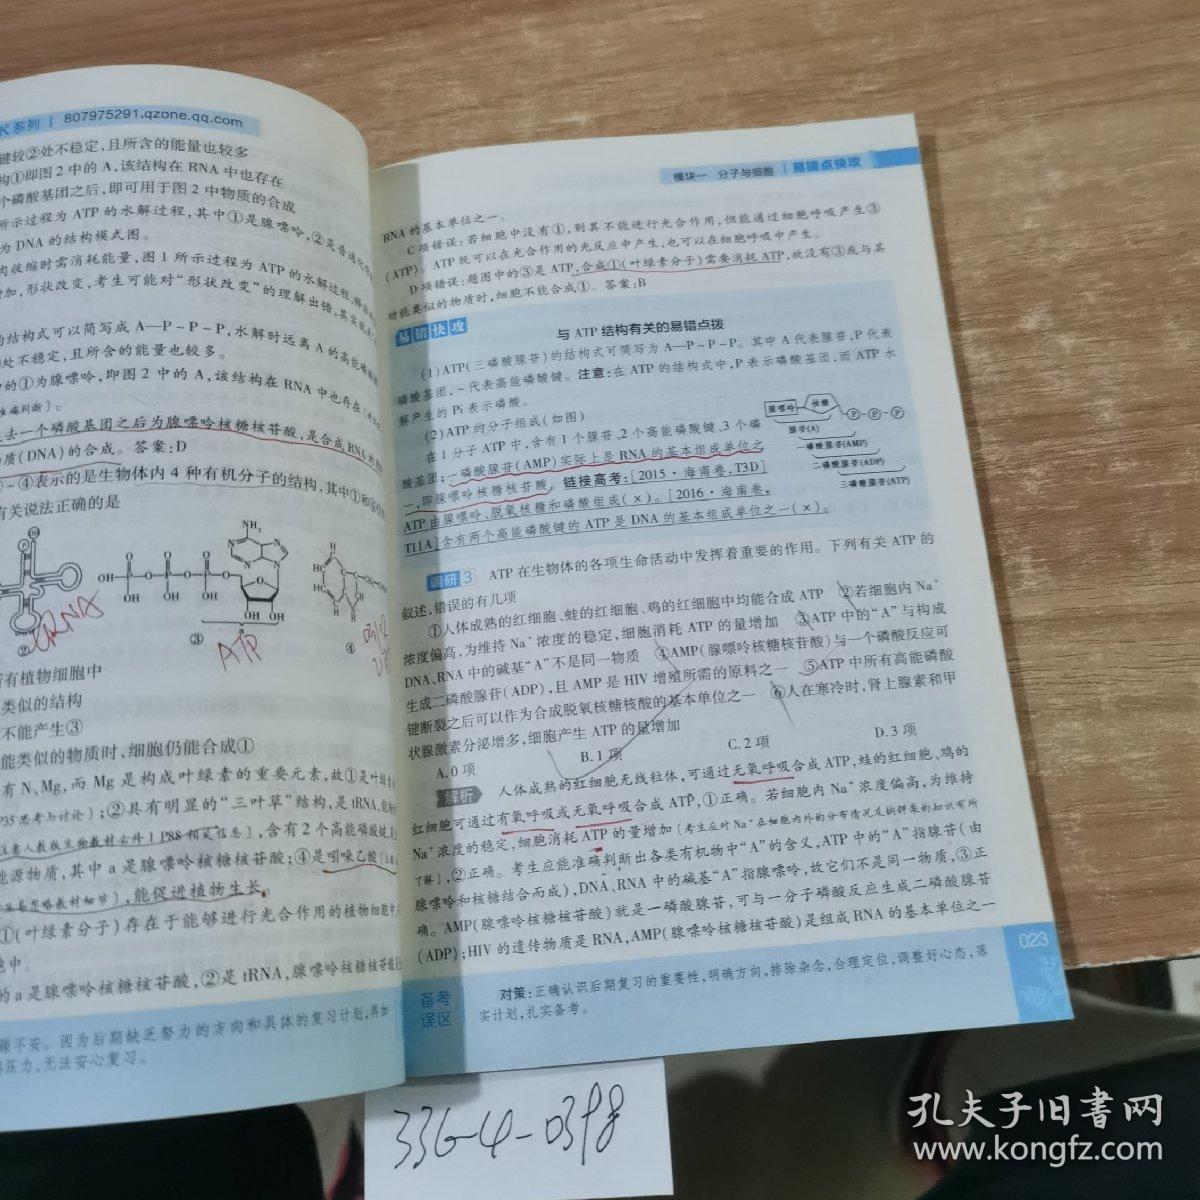 K系列 | 807975291.qzone.qq.com
键较②处不稳定,且所含的能量也较多
构①即图2中的A,该结构在RNA中也存在
个磷酸基团之后,即可用于图2中物质的合成
所示过程为ATP的水解过程,其中①是腺嘌呤,②是普通
为DNA的结构模式图。
肉收缩时需消耗能量,图1所示过程为ATP的水解过程,
加,形状改变,考生可能对“形状改变”的理解出错,其实
的结构式可以简写成A—P~P~P,水解时远离A的高能磷酸
处不稳定,且所含的能量也较多。
的①为腺嘌呤,即图2中的A,该结构在RNA中也存在
准确判断〕。
去一个磷酸基团之后为腺嘌呤核糖核苷酸,是合成RNA的
质(DNA)的合成。答案:D
~④表示的是生物体内4种有机分子的结构,其中①和
有关说法正确的是
②
tRNA
NH₂
③
ATP
④
所有植物细胞中
类似的结构
不能产生③
能类似的物质时,细胞仍能合成①
有N、Mg,而Mg是构成叶绿素的重要元素,故①是叶绿
P35思考与讨论〕;②具有明显的“三叶草”结构,是tRNA,能
注意人教版生物教材必修1P88相关信息〕,含有2个高能磷酸键,
能源物质,其中a是腺嘌呤核糖核苷酸;④是吲哚乙酸
易忽略教材细节〕,能促进植物生长。
①(叶绿素分子)存在于能够进行光合作用的植物细胞中,
胞中。
的a是腺嘌呤核糖核苷酸,②是tRNA,腺嘌呤核糖核苷酸
不安。因为后期缺乏努力的方向和具体的复习计划,再加
压力,无法安心复习。
模块一 分子与细胞 | 易错点快攻
RNA的基本单位之一。
C项错误:若细胞中没有①,则其不能进行光合作用,但能通过细胞呼吸产生③
(ATP)。ATP既可以在光合作用的光反应中产生,也可以在细胞呼吸中产生。
D项错误:题图中的③是ATP,合成①(叶绿素分子)需要消耗ATP,故没有③或与其
功能类似的物质时,细胞不能合成①。答案:B
易错快攻
与ATP结构有关的易错点拨
(1)ATP(三磷酸腺苷)的结构式可简写为A—P~P~P。其中A代表腺苷,P代表
磷酸基团,~代表高能磷酸键。注意:在ATP的结构式中,P表示磷酸基团,而ATP水
解产生的Pi表示磷酸。
(2)ATP的分子组成(如图)
在1分子ATP中,含有1个腺苷、2个高能磷酸键、3个磷
酸基团;一磷酸腺苷(AMP)实际上是RNA的基本组成单位之
一,即腺嘌呤核糖核苷酸。链接高考:[2015·海南卷,T3D]
ATP由腺嘌呤、脱氧核糖和磷酸组成(×)。[2016·海南卷,
T11A]含有两个高能磷酸键的ATP是DNA的基本组成单位之一(×)。
腺嘌呤 核糖 P P P
腺苷(A)
一磷酸腺苷(AMP)
二磷酸腺苷(ADP)
三磷酸腺苷(ATP)
调研3 ATP在生物体的各项生命活动中发挥着重要的作用。下列有关ATP的
叙述,错误的有几项
①人体成熟的红细胞、蛙的红细胞、鸡的红细胞中均能合成ATP ②若细胞内Na⁺
浓度偏高,为维持Na⁺浓度的稳定,细胞消耗ATP的量增加 ③ATP中的“A”与构成
DNA、RNA中的碱基“A”不是同一物质 ④AMP(腺嘌呤核糖核苷酸)与一个磷酸反应可
生成二磷酸腺苷(ADP),且AMP是HIV增殖所需的原料之一 ⑤ATP中所有高能磷酸
键断裂之后可以作为合成脱氧核糖核酸的基本单位之一 ⑥人在寒冷时,肾上腺素和甲
状腺激素分泌增多,细胞产生ATP的量增加
A.0项 B.1项 C.2项 D.3项
解析 人体成熟的红细胞无线粒体,可通过无氧呼吸合成ATP,蛙的红细胞、鸡的
红细胞可通过有氧呼吸或无氧呼吸合成ATP,①正确。若细胞内Na⁺浓度偏高,为维持
Na⁺浓度的稳定,细胞消耗ATP的量增加〔考生应对Na⁺在细胞内外的分布情况及钠钾泵的知识有所
了解〕,②正确。考生应能准确判断出各类有机物中“A”的含义,ATP中的“A”指腺苷(由
腺嘌呤和核糖结合而成),DNA、RNA中的碱基“A”指腺嘌呤,故它们不是同一物质,③正
确。AMP(腺嘌呤核糖核苷酸)就是一磷酸腺苷,可与一分子磷酸反应生成二磷酸腺苷
(ADP);HIV的遗传物质是RNA,AMP(腺嘌呤核糖核苷酸)是组成RNA的基本单位之一
023
备考误区
对策:正确认识后期复习的重要性,明确方向,排除杂念,合理定位,调整好心态,落
实计划,扎实备考。
336-4-0398
孔夫子旧书网
www.kongfz.com